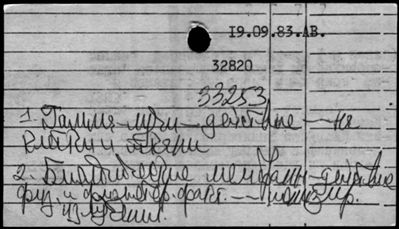 19.09.83.АВ.
32820
33253
1. Гамма-лучи — действие — на
клетки и ткани
2. Биологические мембраны - действие
физ. и физ. фак. — ионизир.
излучения.